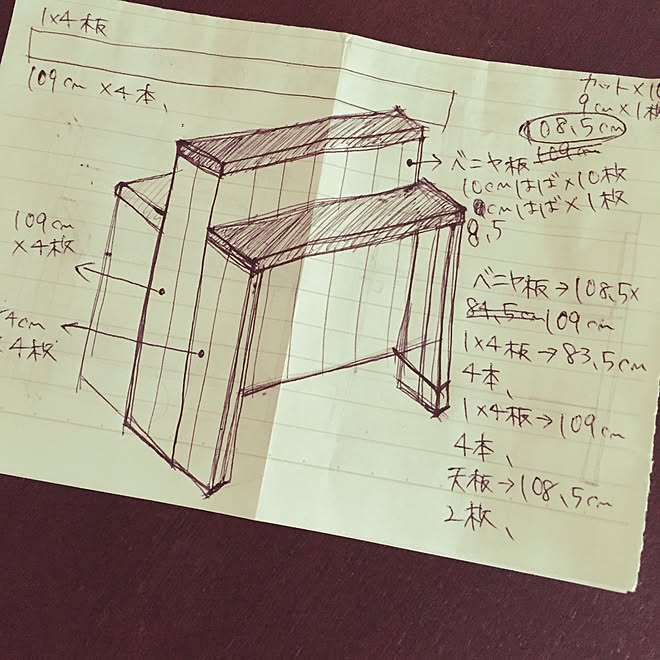 1×4板
109cm ×4本、
カット×10
9cm×1枚
108,5cm
109cm
ベニヤ板
10cmはば×10枚
cmはば×1枚
8,5
109cm
×4枚
4cm
4枚
ベニヤ板→108,5×
84,5cm109cm
1×4板→83,5cm
4本、
1×4板→109cm
4本、
天板→108,5cm
2枚、